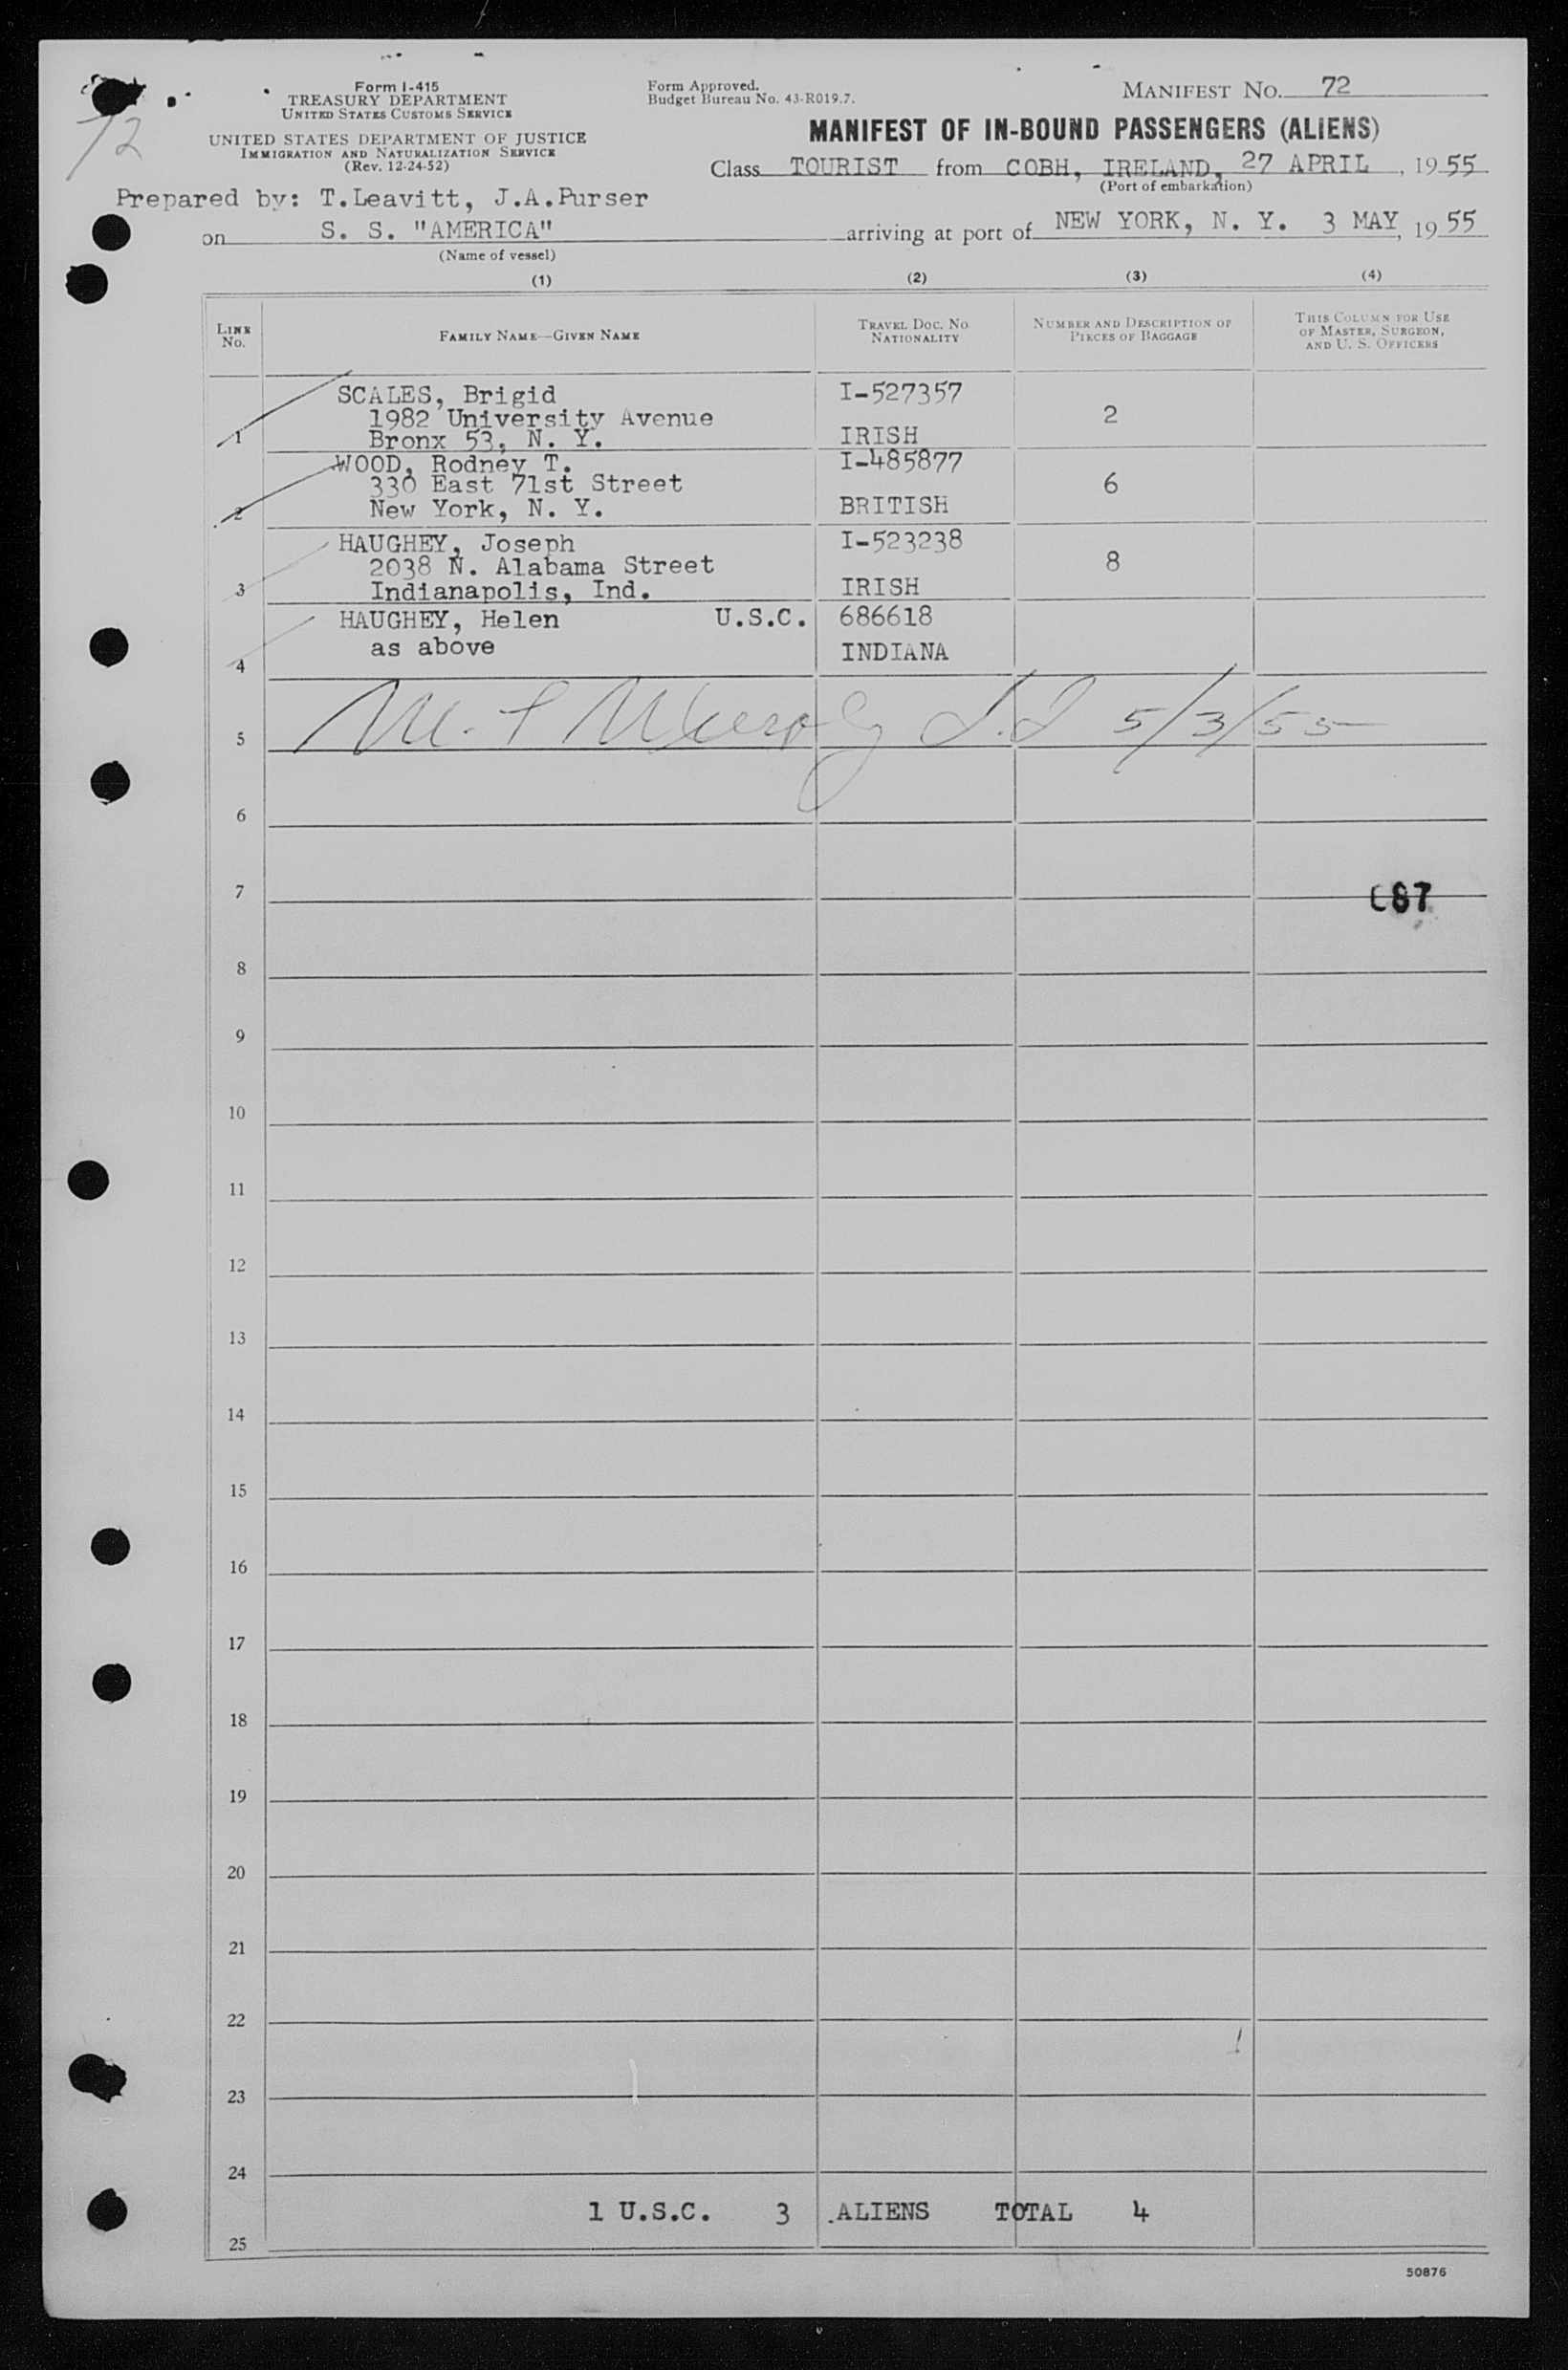 Form I-415
TREASURY DEPARTMENT
UNITED STATES CUSTOMS SERVICE
UNITED STATES DEPARTMENT OF JUSTICE
IMMIGRATION AND NATURALIZATION SERVICE
(Rev. 12-24-52)
Form Approved.
Budget Bureau No. 43-R019.7.
MANIFEST NO. 72
72
MANIFEST OF IN-BOUND PASSENGERS (ALIENS)
Class TOURIST from COBH, IRELAND, 27 APRIL, 1955
(Port of embarkation)
Prepared by: T.Leavitt, J.A.Purser
on S. S. "AMERICA" arriving at port of NEW YORK, N. Y. 3 MAY, 1955
(Name of vessel)
(1) (2) (3) (4)
LINE No. FAMILY NAME—GIVEN NAME TRAVEL DOC. NO. NATIONALITY NUMBER AND DESCRIPTION OF PIECES OF BAGGAGE THIS COLUMN FOR USE OF MASTER, SURGEON, AND U. S. OFFICERS
SCALES, Brigid I-527357
1982 University Avenue 2
1 Bronx 53, N. Y. IRISH
WOOD, Rodney T. I-485877
330 East 71st Street 6
2 New York, N. Y. BRITISH
HAUGHEY, Joseph I-523238
2038 N. Alabama Street 8
3 Indianapolis, Ind. IRISH
HAUGHEY, Helen U.S.C. 686618
as above INDIANA
4
5 5/3/55
6
7 87
8
9
10
11
12
13
14
15
16
17
18
19
20
21
22
23
24
1 U.S.C. 3 ALIENS TOTAL 4
25
50876